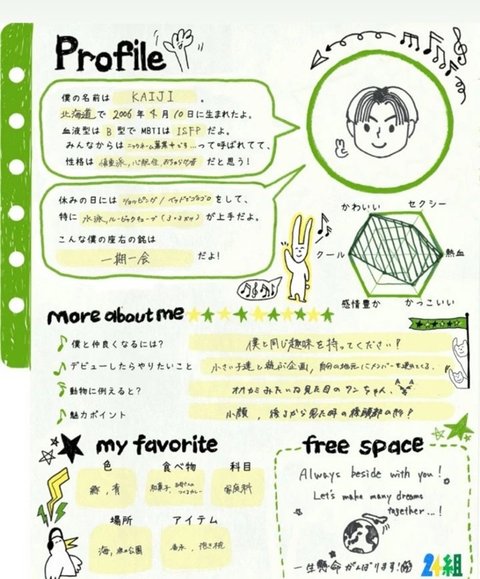 Profile
僕の名前は KAIJI 。
北海道で 2006年 4月 10日に生まれたよ。
血液型は B 型で MBTIは ISFP だよ。
みんなからは って呼ばれてて、
性格は 慎重派、心配性、 だと思う!
休みの日には ショッピング / をして、
特に 水泳、ルービックキューブ(3×3×3) が上手だよ。
こんな僕の座右の銘は
一期一会 だよ!
かわいい セクシー
クール 熱血
感情豊か かっこいい
more about me
僕と仲良くなるには? 僕と同じ趣味を持ってください?
デビューしたらやりたいこと 小さい子達と遊ぶ企画、自分の地元にメンバーを連れてくる。
動物に例えると? オオカミみたいな見た目のワンちゃん。
魅力ポイント 小顔、後ろから見た時の後頭部の形?
my favorite
色 食べ物 科目
紫、青 和菓子、 家庭科
場所 アイテム
海、 公園 香水、抱き枕
free space
Always beside with you!
Let's make many dreams
together...!
一生懸命がんばります!
24組